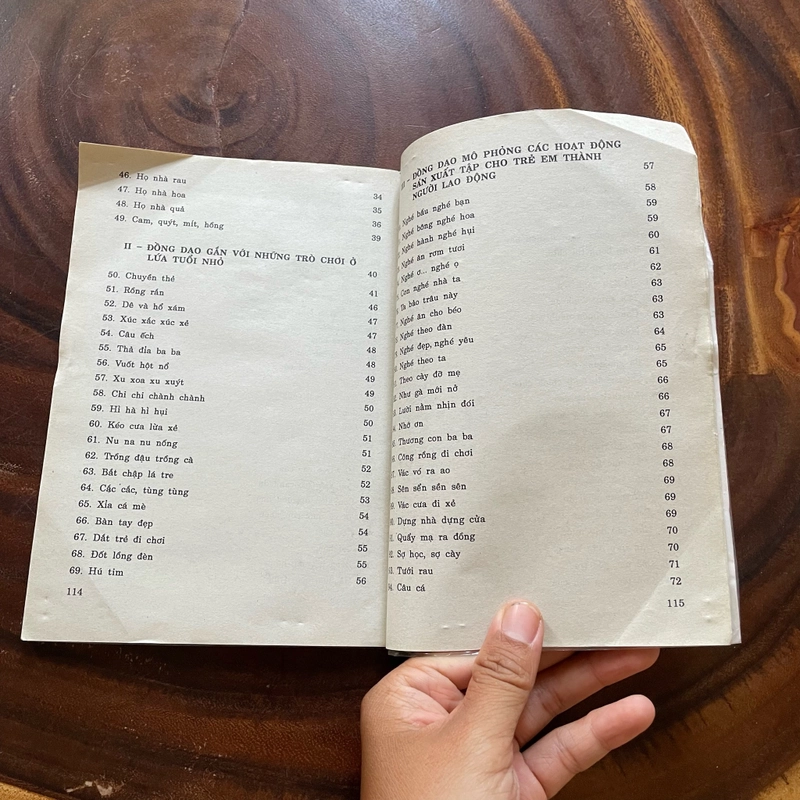 46. Họ nhà rau 34
47. Họ nhà hoa 35
48. Họ nhà quả 36
49. Cam, quýt, mít, hồng 39
II – ĐỒNG DAO GẮN VỚI NHỮNG TRÒ CHƠI Ở
LỨA TUỔI NHỎ 40
50. Chuyền thẻ 41
51. Rồng rắn 46
52. Dê và hổ xám 47
53. Xúc xắc xúc xẻ 47
54. Câu ếch 48
55. Thả đỉa ba ba 48
56. Vuốt hột nổ 49
57. Xu xoa xu xuýt 49
58. Chi chi chành chành 50
59. Hì hà hì hụi 50
60. Kéo cưa lừa xẻ 51
61. Nu na nu nống 51
62. Trồng đậu trồng cà 52
63. Bắt chập lá tre 52
64. Cắc cắc, tùng tùng 53
65. Xỉa cá mè 54
66. Bàn tay đẹp 54
67. Dắt trẻ đi chơi 55
68. Đốt lồng đèn 55
69. Hú tim 56
114
– ĐỒNG DAO MÔ PHỎNG CÁC HOẠT ĐỘNG
SẢN XUẤT TẬP CHO TRẺ EM THÀNH
NGƯỜI LAO ĐỘNG 57
Nghé bầu nghé bạn 58
Nghé bông nghé hoa 59
Nghé hành nghé hụi 59
Nghé ăn rơm tươi 60
Nghé ơ... nghé ọ 61
Con nghé nhà ta 62
Ta bảo trâu này 63
Nghé ăn cho béo 63
Nghé theo đàn 63
Nghé đẹp, nghé yêu 64
Nghé theo ta 65
Theo cày đỡ mẹ 65
Như gà mới nở 66
Lười nằm nhịn đói 66
Nhớ ơn 67
Thương con ba ba 67
Công rồng đi chơi 68
Vác vó ra ao 68
Sên sển sền sên 69
Vác cưa đi xẻ 69
Dựng nhà dựng cửa 69
Quẩy mạ ra đồng 70
Sợ học, sợ cày 70
Tưới rau 71
Câu cá 72
115